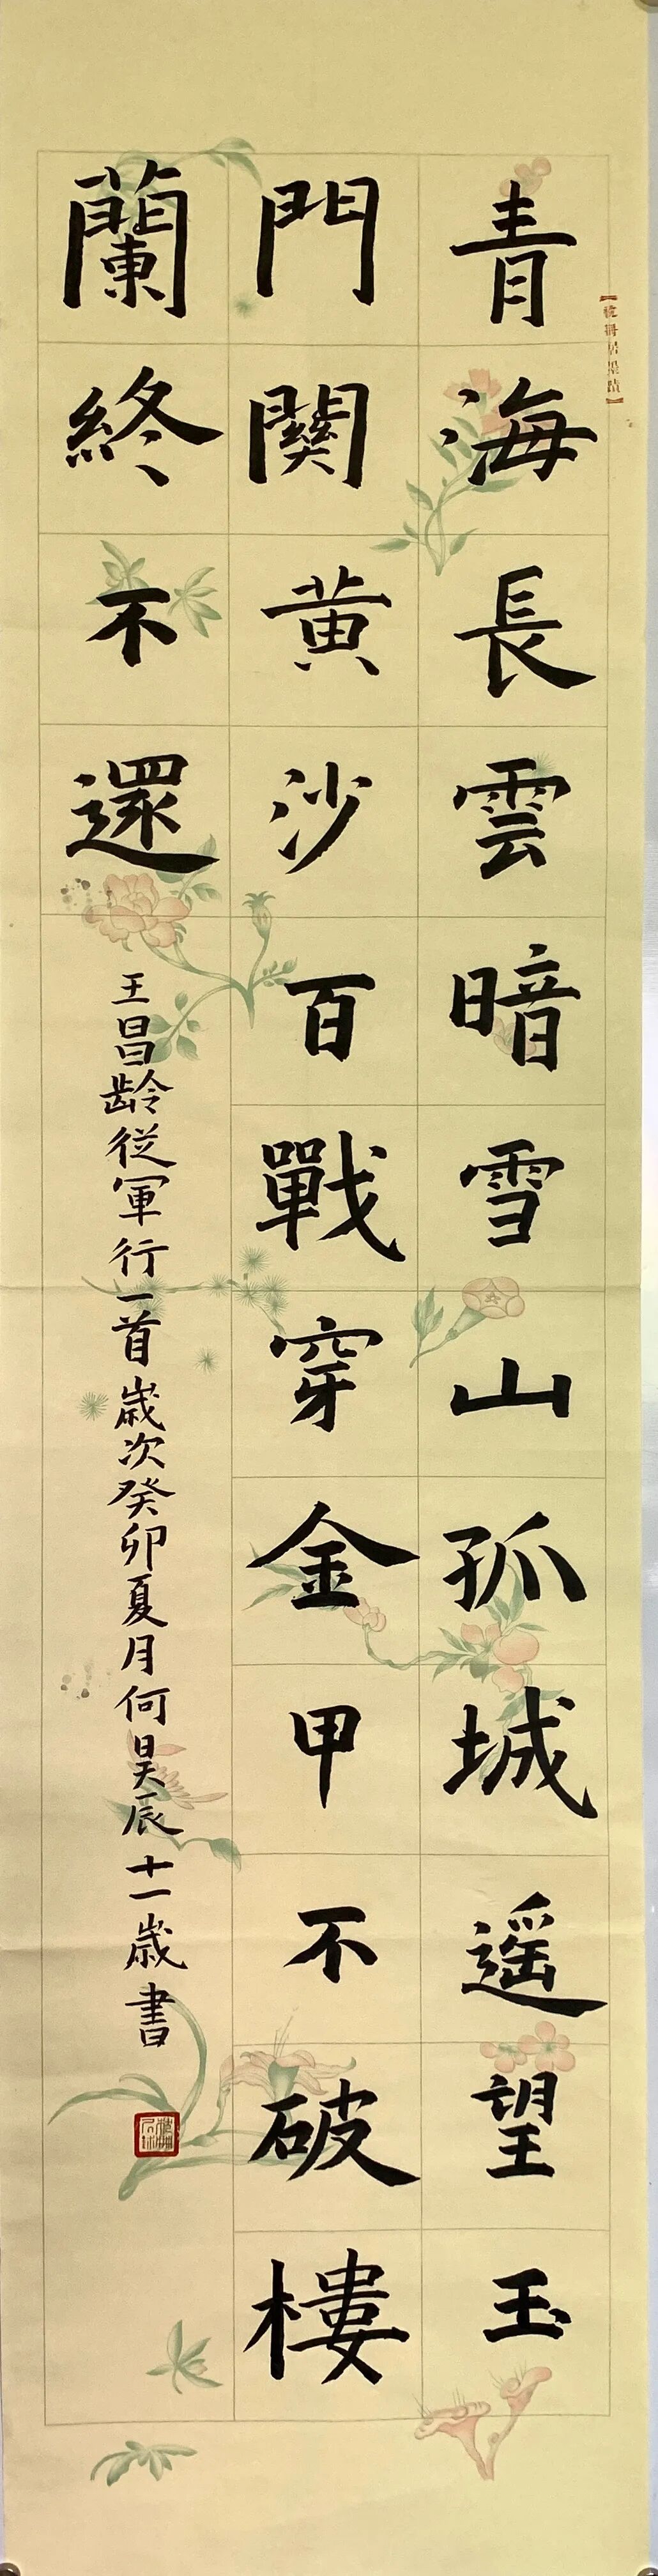 青海長雲暗雪山孤城遥望玉
門関黄沙百戰穿金甲不破樓
蘭終不還
王昌龄従軍行一首歲次癸卯夏月何昊辰十一歲書